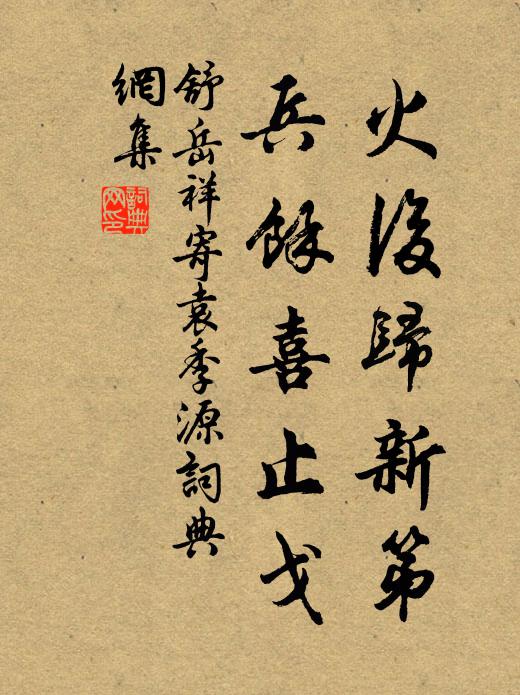 火後歸新第
兵餘喜止戈
舒岳祥寄袁季源詞典
網集
詞典
网印